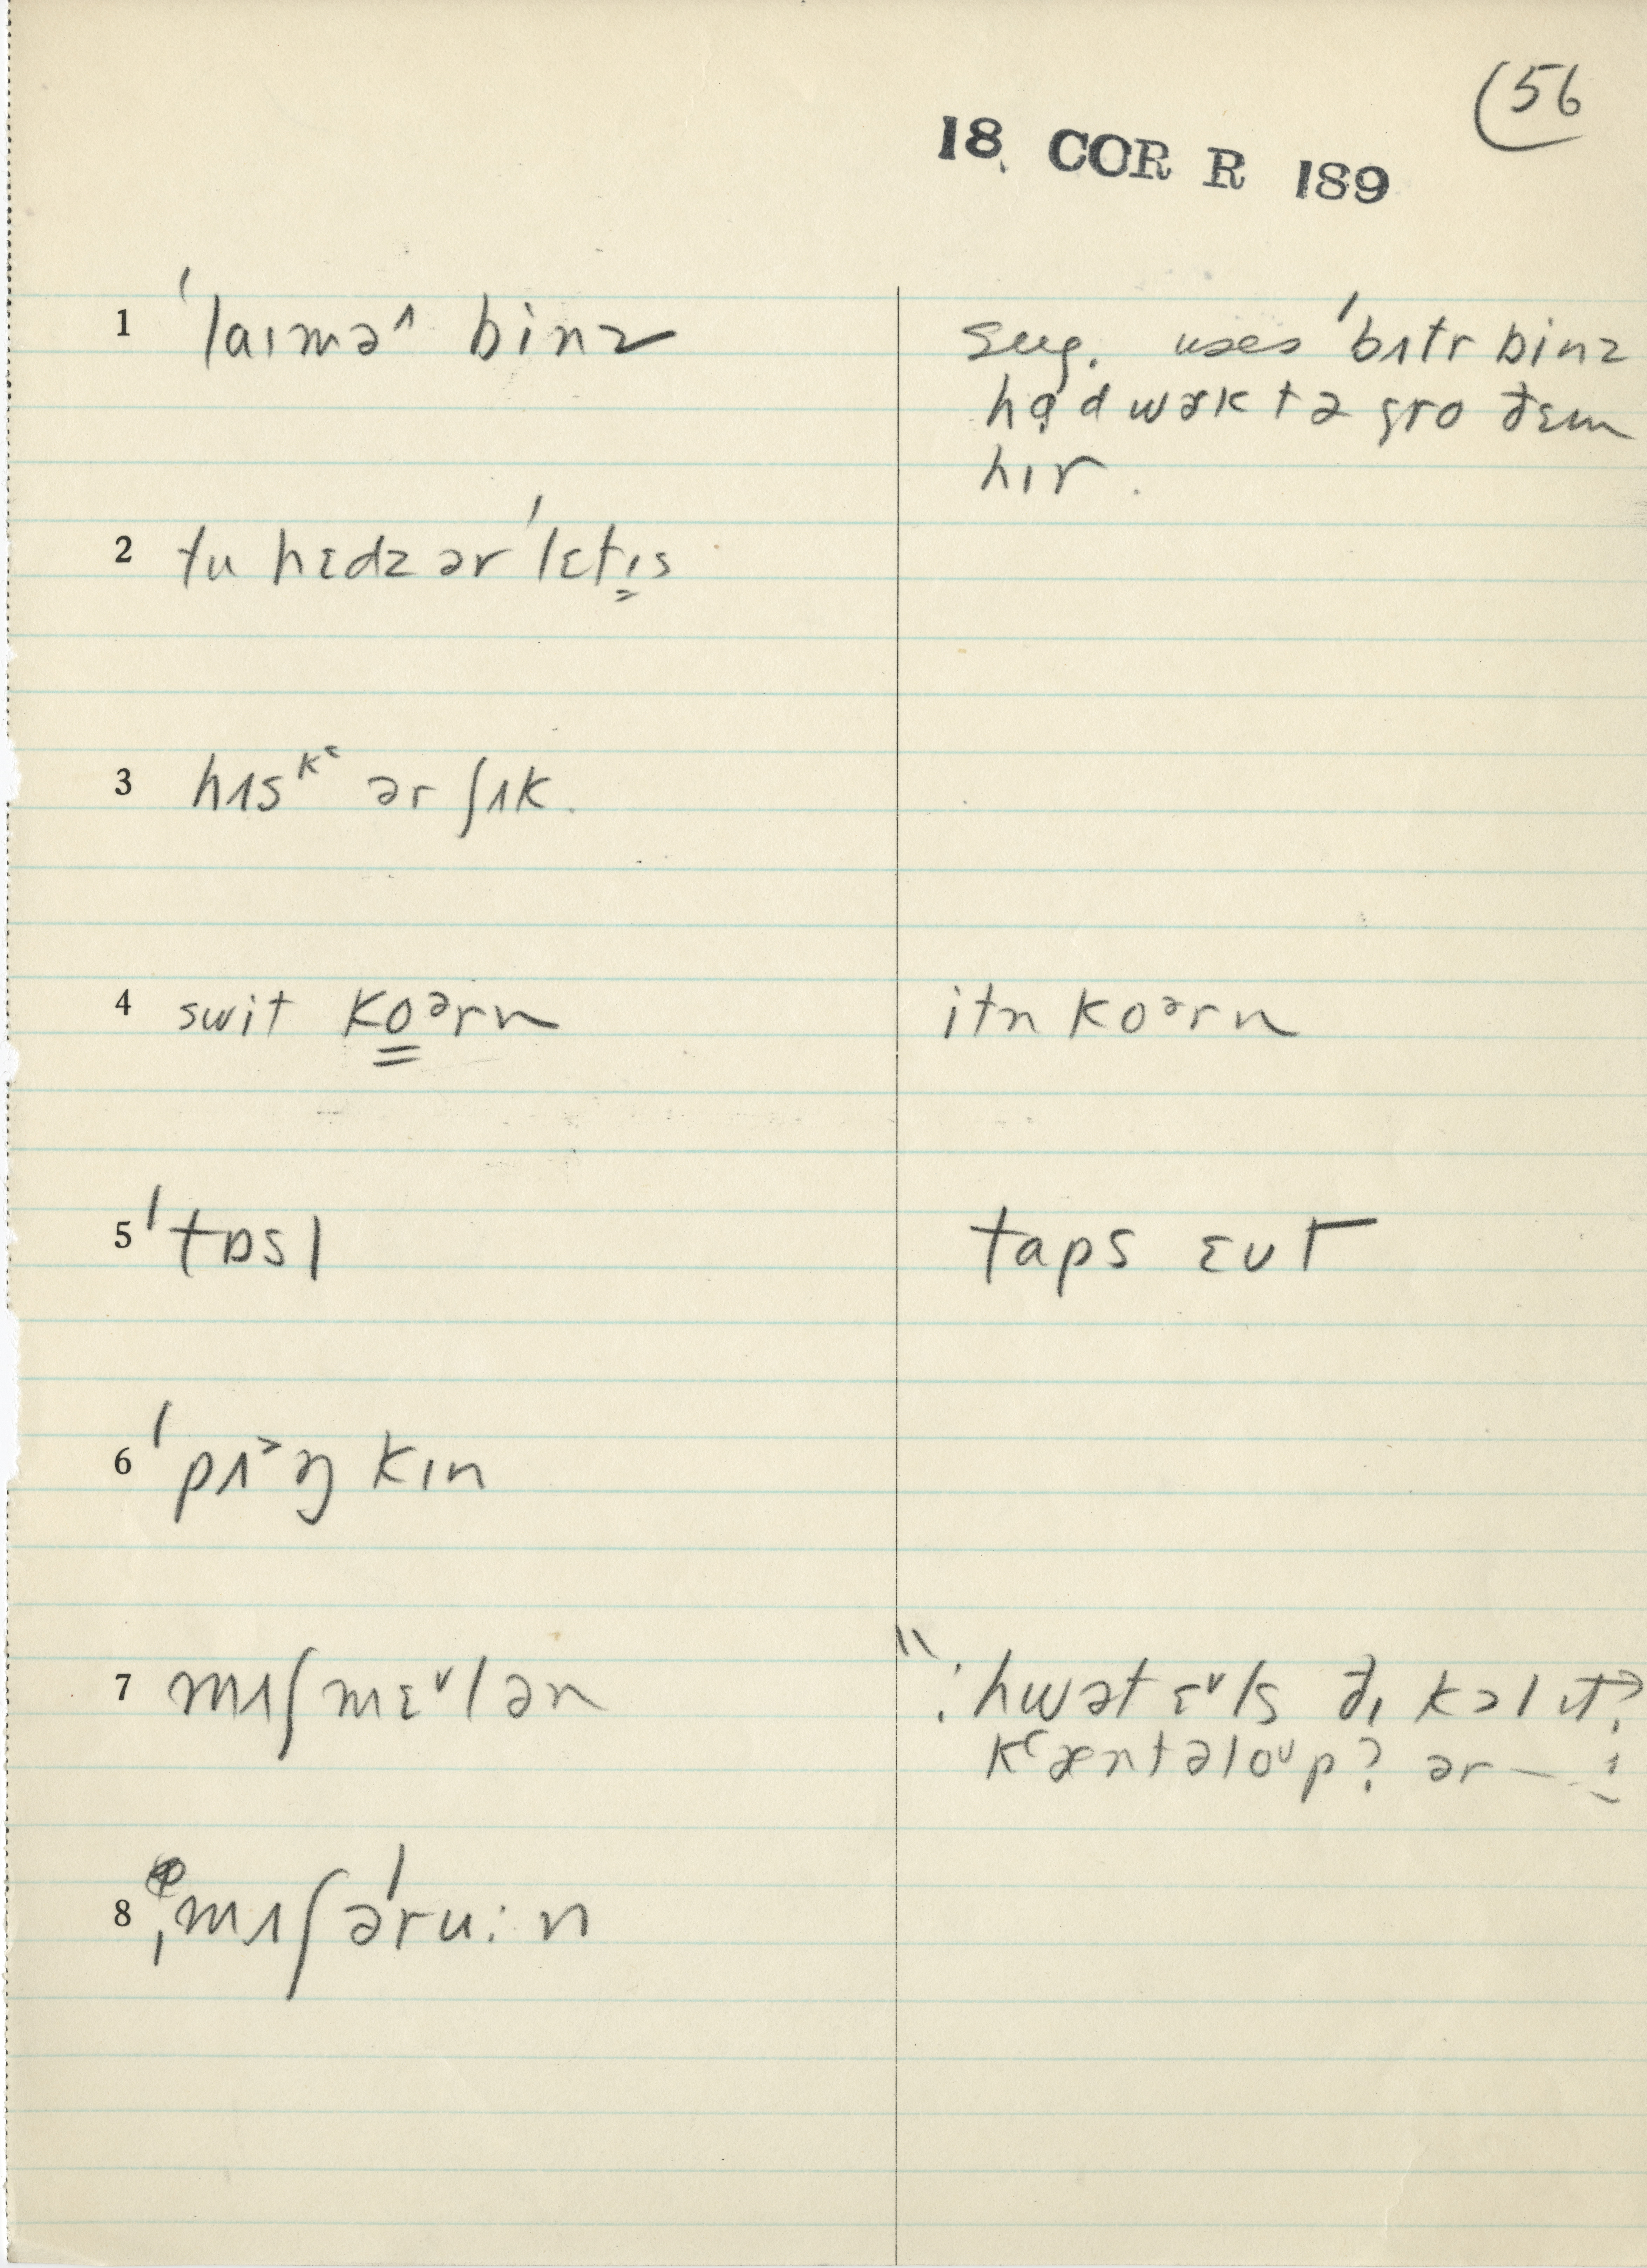 (56
18 COR R 189
1 ˈlaɪmə^ binz
sug. uses ˈbʌtr binz
hɑ̣d wɚk tə gro ðɛm
hɪr.
2 tu hɛdz ər ˈlɛtɪs
3 hʌsᵏʿ ər ʃʌk.
4 swit koᵊrn
itn koᵊrn
5 ˈtɒsl
taps ɛvr
6 ˈpʌ˃ŋ kɪn
7 mʌʃ mɛ˅lən
: hwət ɛ˅ls ðɪ kɔl ɪt?
kʿæntəloᵘp? ər — :
8 ˌmʌʃəˈru:n